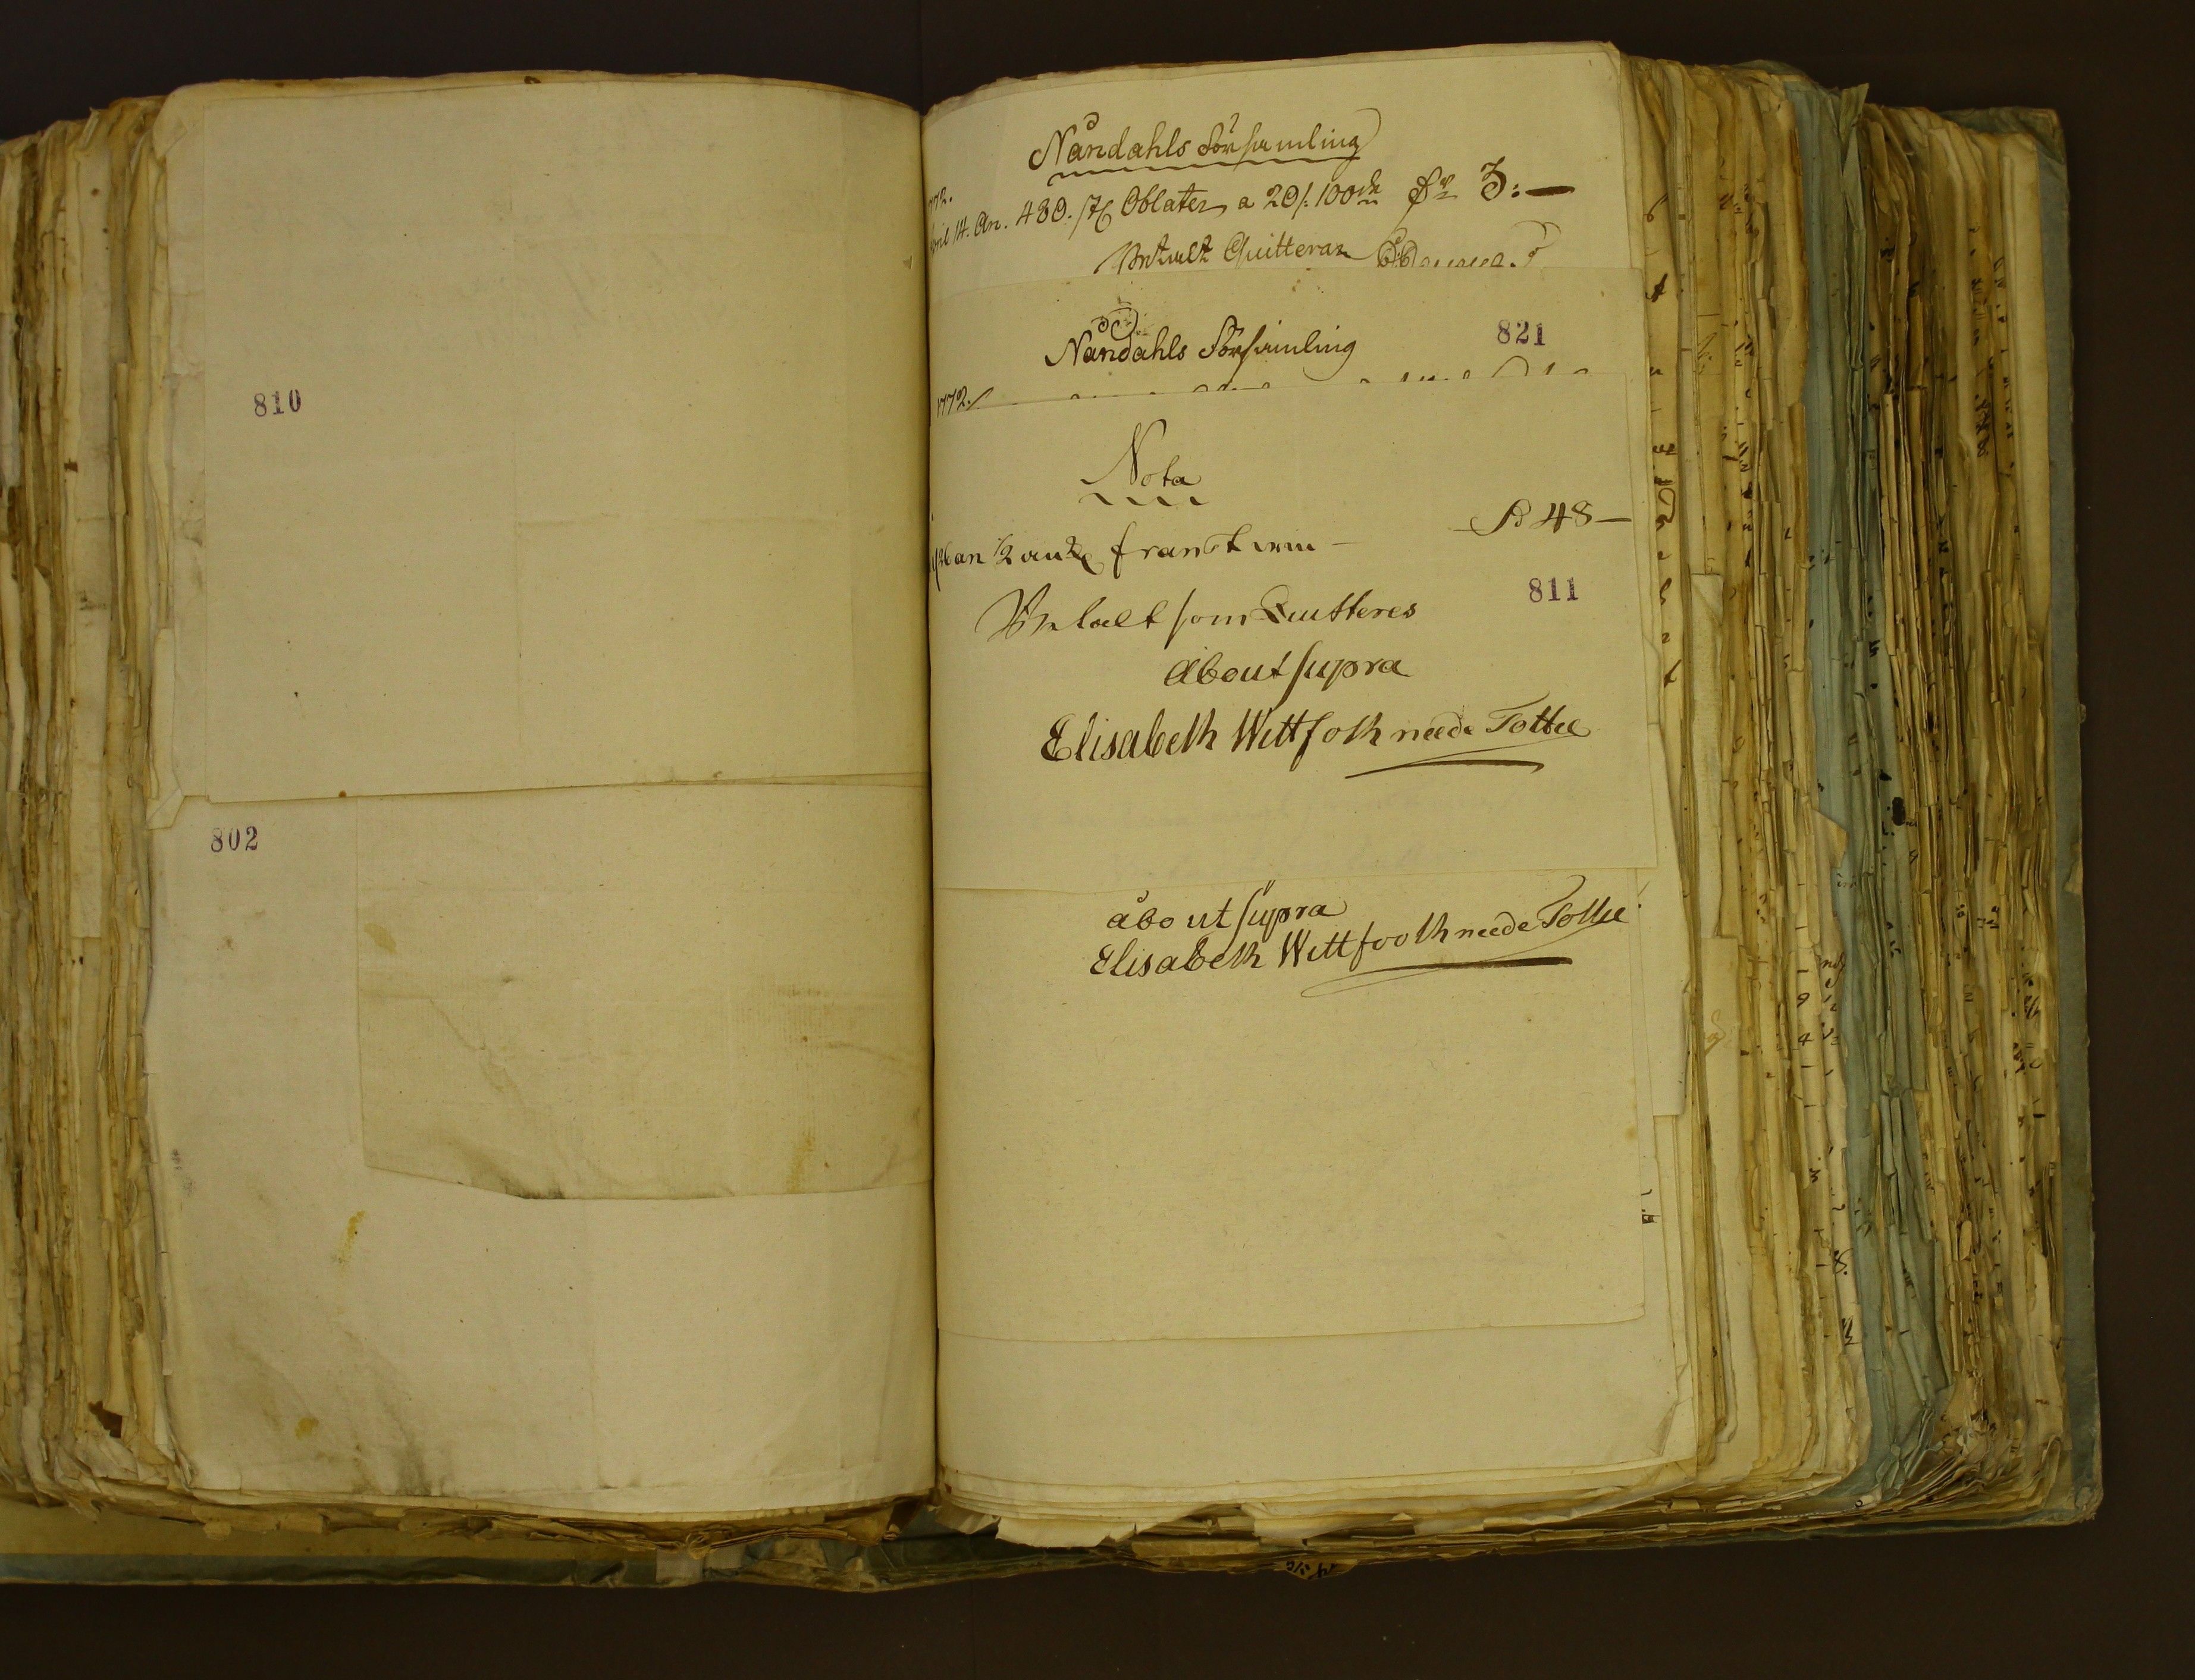 810
802
Nåndahls Församling
1772.
April 14. An. 480. st Oblater a 20/. 100de Sr 3:—
Betalt Quitterar
Nåndahls Församling
821
1772.
Nota
an 1/2 ank franskt win — R 48—
811
Betalt som Quitteres
Åbo ut supra
Elisabeth Wittfoth neede Tottie
åbo ut supra
Elisabeth Wittfooth neede Tottie